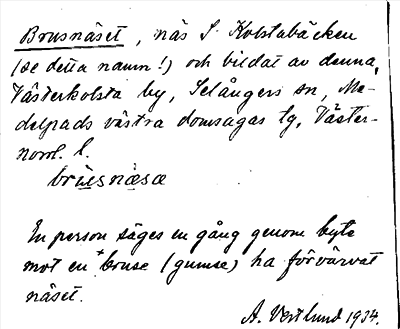 Brusnäset, näs i Kolstabäcken
(se detta namn!) och bildat av denna,
Västerkolsta by, Selångers sn, Me-
delpads västra domsagas tg, Väster-
norrl. l.
brùsnæsæ
En person säges en gång genom byte
mot en + bruse (gumse) ha förvärvat
näset.
A. Vestlund 1934.